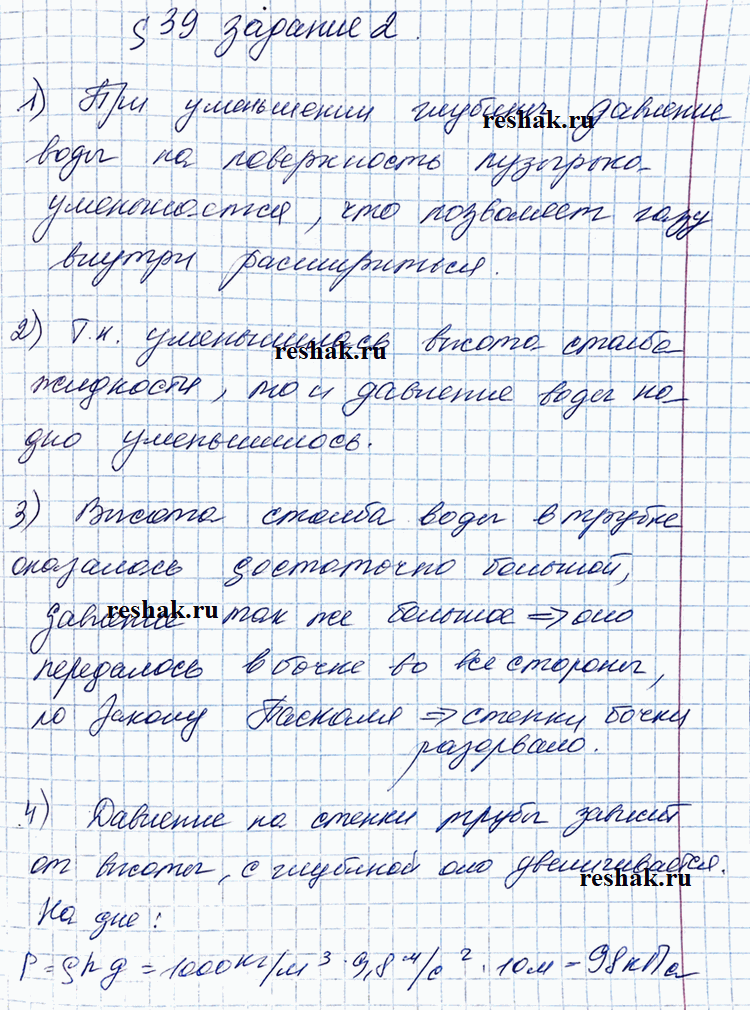 § 39 задание 2.
1) При уменьшении глубины давление
воды на поверхность пузырька
уменьшается, что позволяет газу
внутри расшириться.
2) Т.к. уменьшилась высота столба
жидкости, то и давление воды на
дно уменьшилось.
3) Высота столба воды в трубке
оказалась достаточно большой,
давление так же большое => оно
передалось в бочке во все стороны,
по Закону Паскаля => стенки бочки
разорвало.
4) Давление на стенки трубы зависит
от высоты, с глубиной оно увеличивается.
На дне:
P = ρhg = 1000кг/м³ · 9,8 м/с² · 10м = 98кПа
reshak.ru
reshak.ru
reshak.ru
reshak.ru